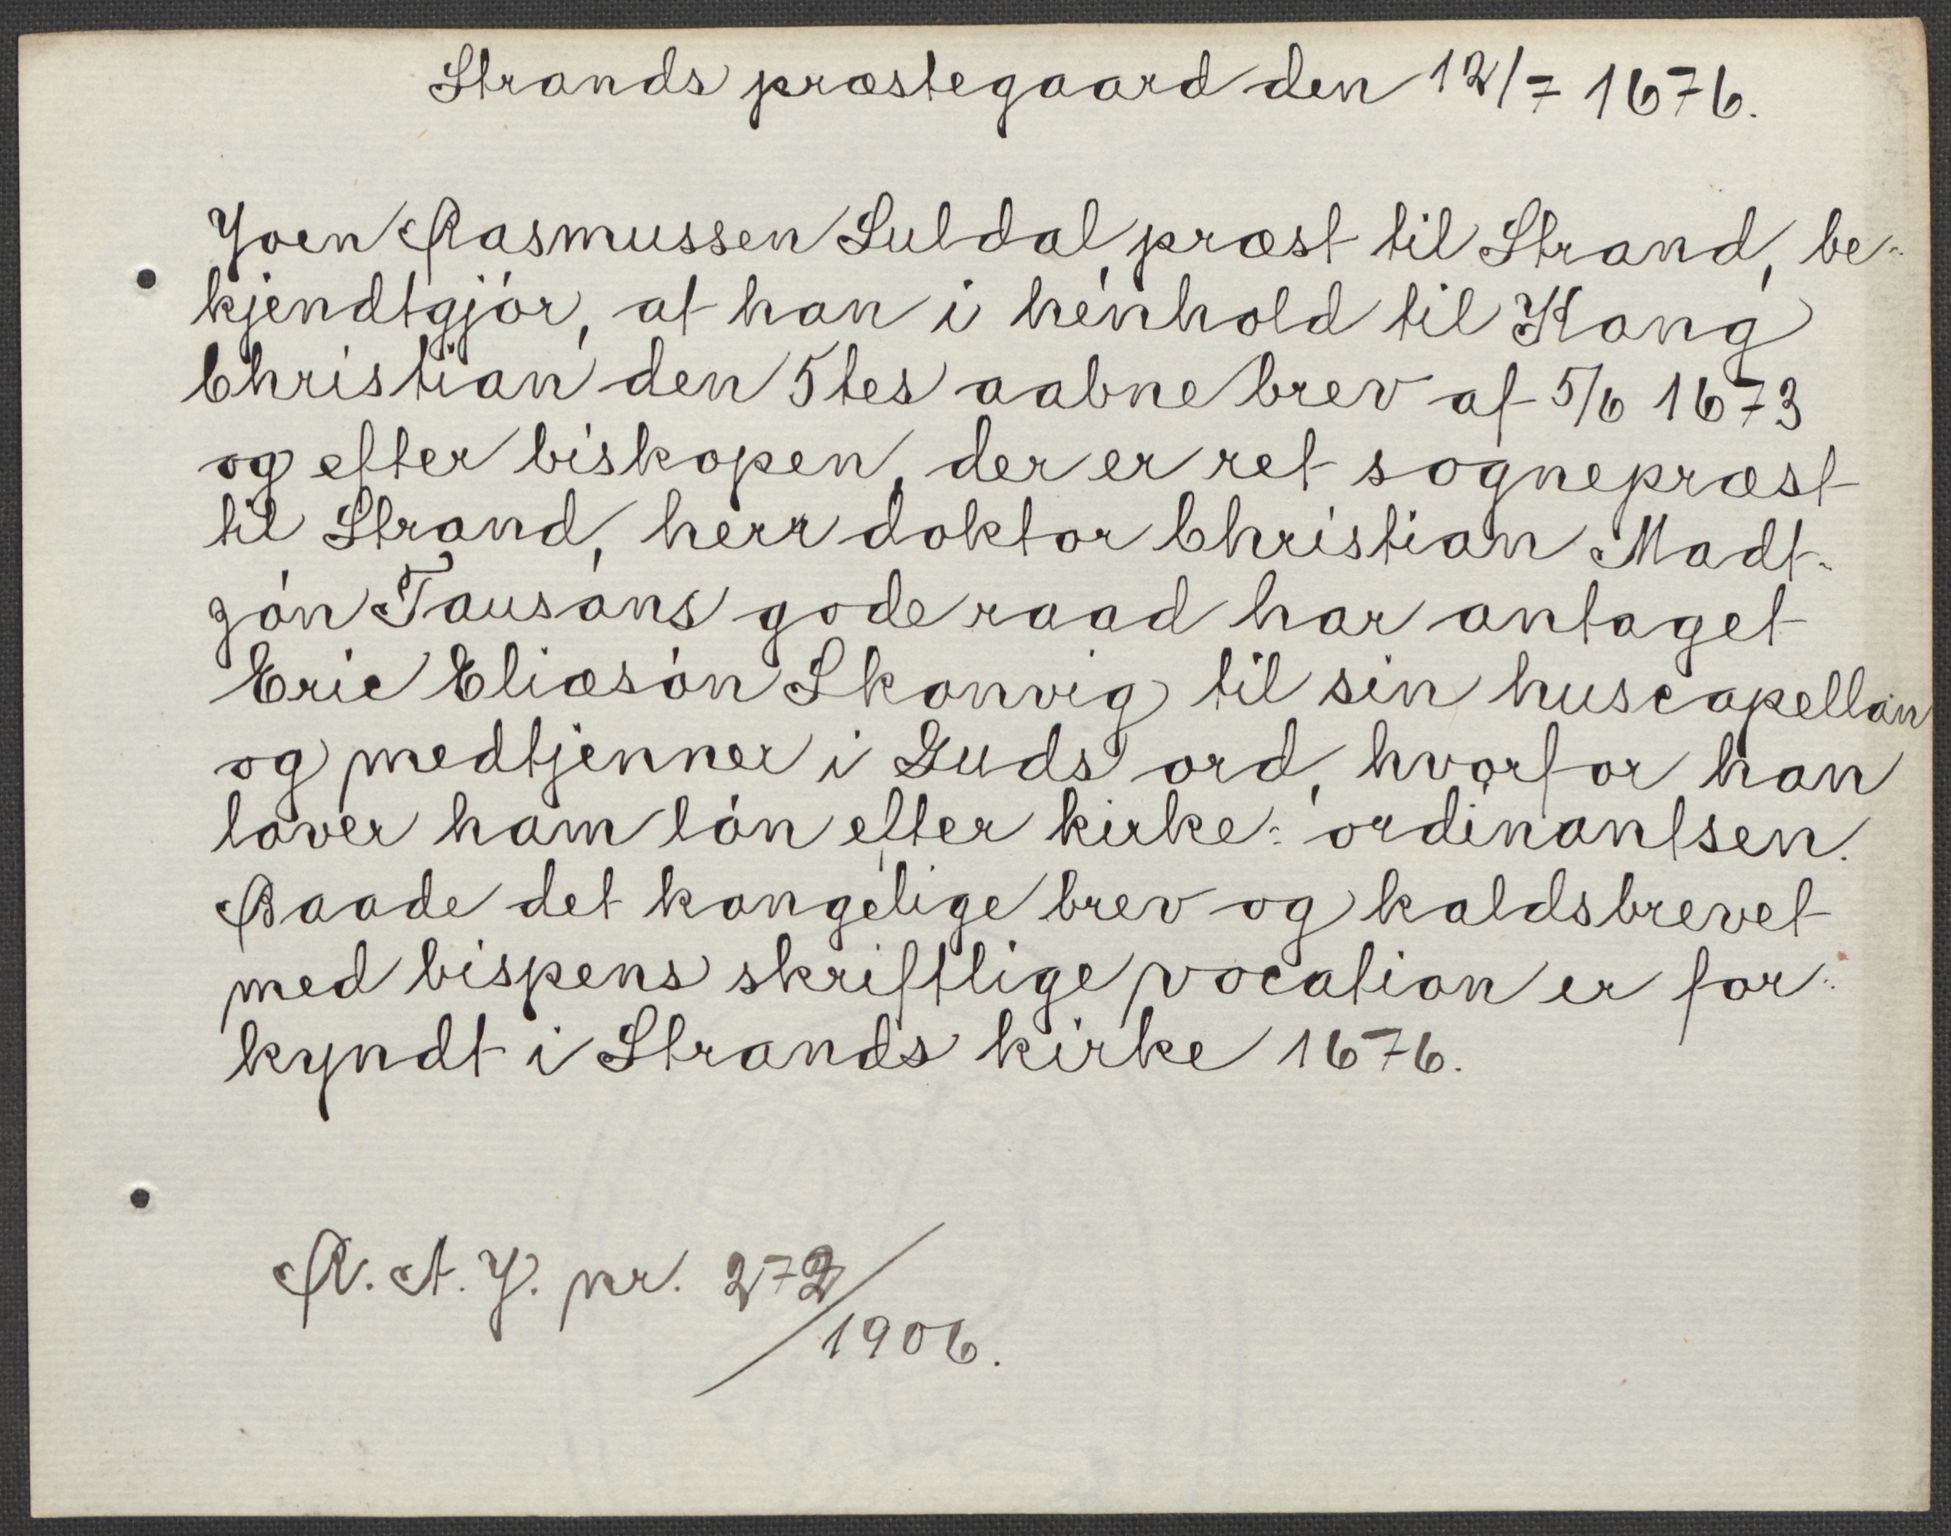 Strands præstegaard den 12/7 1676.
Joen Rasmussen Suldal, præst til Strand, be-
kjendtgjór, at han i henhold til Kong
Christian den 5tes aabne brev af 5/6 1673
og efter biskopen, der er ret sognepræst
til Strand, herr doktor Christian Madt-
zón Tausáns gode raad har antaget
Eric Eliæsón Skanvig til sin huscapellan
og medtjenner i Guds ord, hvorfor han
lover ham lón efter kirke-ordinantsen.
Baade det kongelige brev og kaldsbrevet
med bispens skriftlige vocation er for-
kyndt i Strands kirke 1676.
R. A. J. nr. 272/1906.